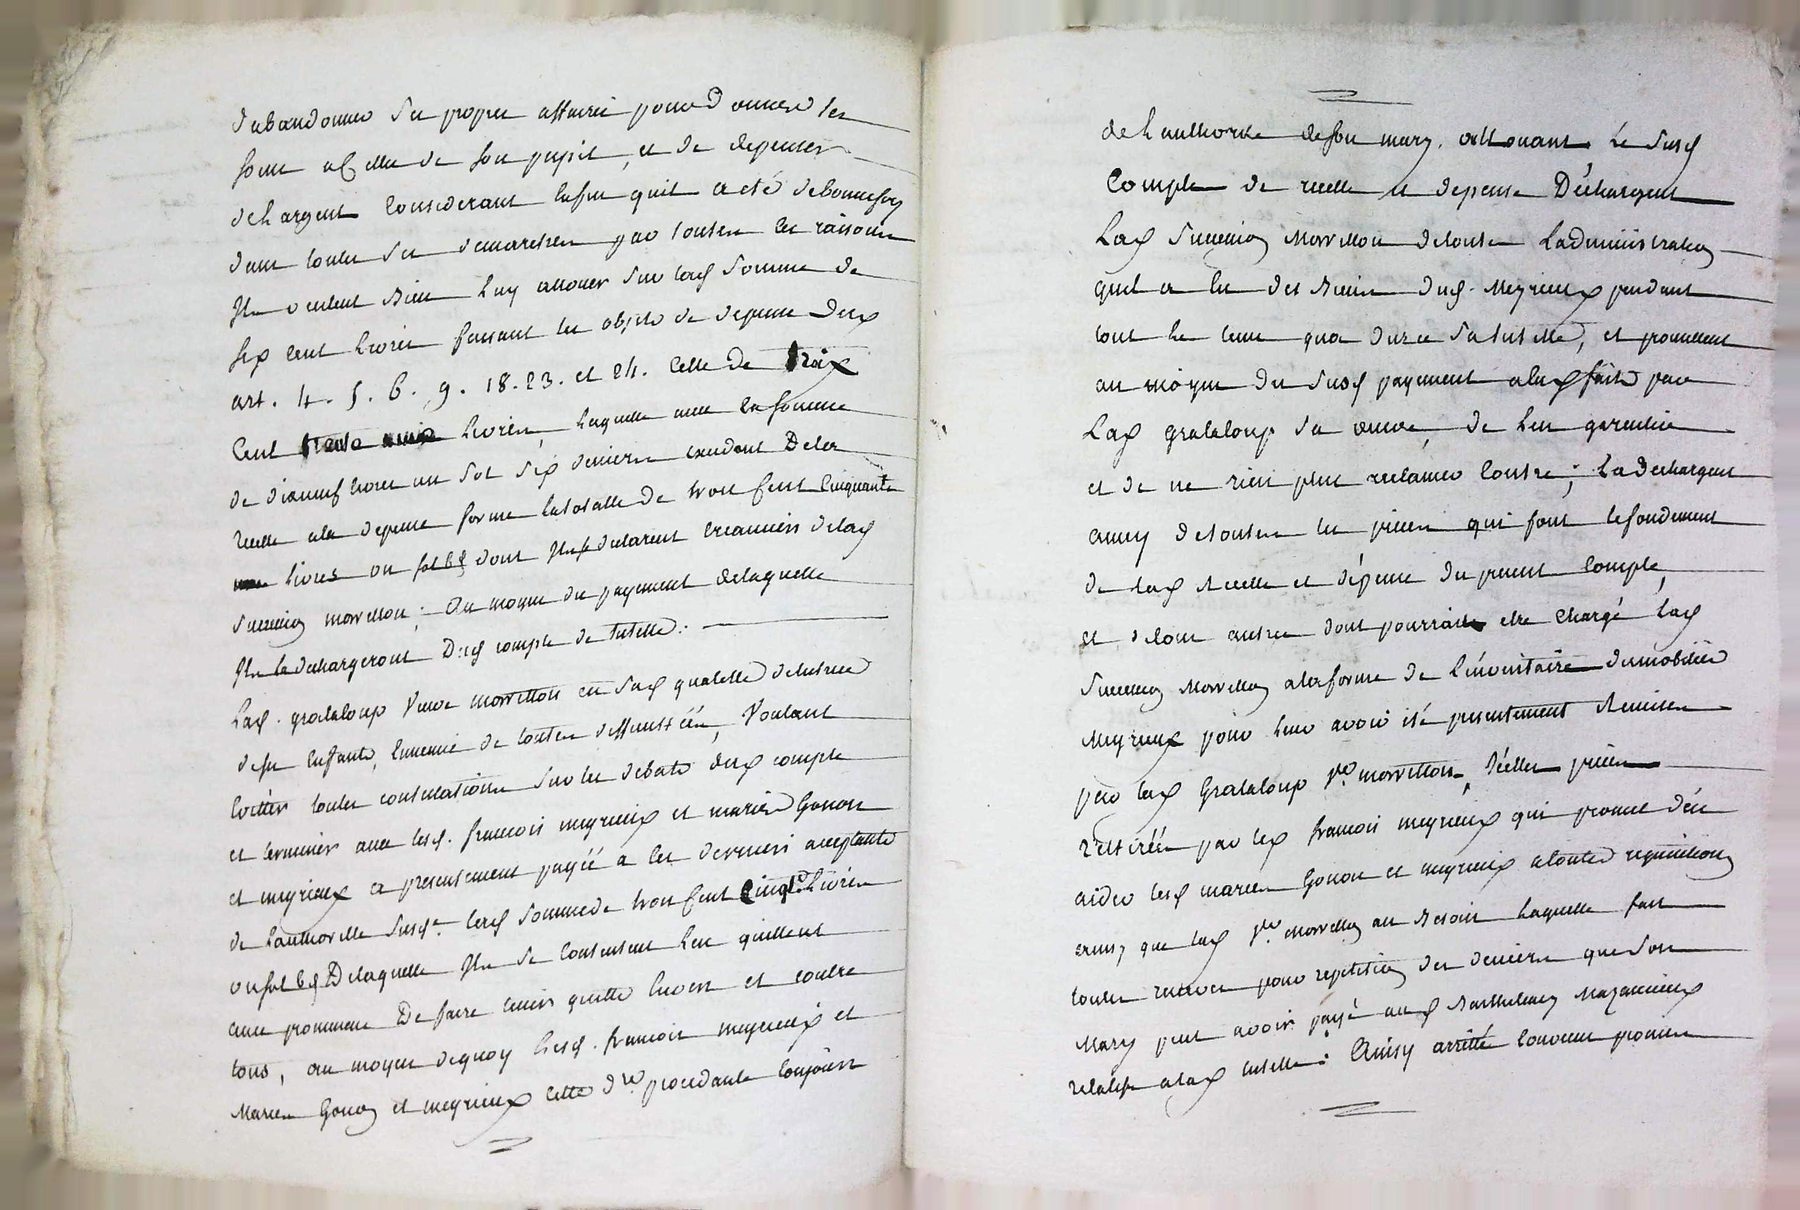 d'abandonner sa propre affaire pour donner ses
soins a Celle de son pupil, et de depenser
de l'argent Considerant Enfin quil a eté de bonne foy
dans toutes ses demarches par toutes ces raisons
Ils veulent bien luy allouer sur lad somme de
six cent livres faisant les objets de depense desd
art. 4. 5. 6. 9. 18. 23. et 24. Celle de trois
Cent livres, laquelle avec la somme
de dixneuf livres un sol six deniers excedant de la
recette a la depense forme la totalle de trois Cent Cinquante
livres un sol 6d dont Ils se declarent creanciers de lad
succession morvillon; au moyen du payement de laquelle
Ils le dechargeront dud compte de tutelle.
Lad. grataloup veuve morvillon en sad qualitté de tutrice
de ses Enfants, Ennemie de toutes difficultées, voulant
Eviter toutes contestations sur les debats dud compte
et terminer avec lesd. francois meyrieux et mariée Gonon
et meyrieux a presentement payéé a ces derniers acceptants
de l'authoritté susd. lad somme de trois Cent Cinqte livres
un sol 6d De laquelle Ils se contentent l'en quittent
avec promesse De faire tenir quitte Envers et contre
tous, au moyen de quoy lesd. francois meyrieux et
Mariés Gonon et meyrieux cette dre procedante toujours
de l'authorité de son mary, allouant le susd
Compte de recette et depense Déchargent
Lad succession Morvillon de toute l'administration
quil a Eu des biens dud. Meyrieux pendant
tout le tems qu'a durée sa tutelle, et promettent
au moyen du susd payement a lad fait par
Lad grataloup sa veuve, de l'en garentir
et de ne rien plus reclamer contre; La dechargent
aussy de toutes les pieces qui font le fondement
de lad Recette et dépense du present Compte,
et de tous autres dont pourrait etre chargé lad
succession Morvillon a la forme de l'inventaire du mobilier
Meyrieux pour leur avoir eté presentement Remises
par lad Grataloup ve morvillon, Icelles pieces
retirées par led francois meyrieux qui promet d'en
aider lesd mariés Gonon et meyrieux a toutes requisitions
ainsy que lad ve Morvillon au besoin laquelle fait
toutes reserves pour repetition des deniers que son
Mary peut avoir payé aud Barthelemy Mazancieux
relatifs a lad tutelle: Ainsy arretté convenu promis